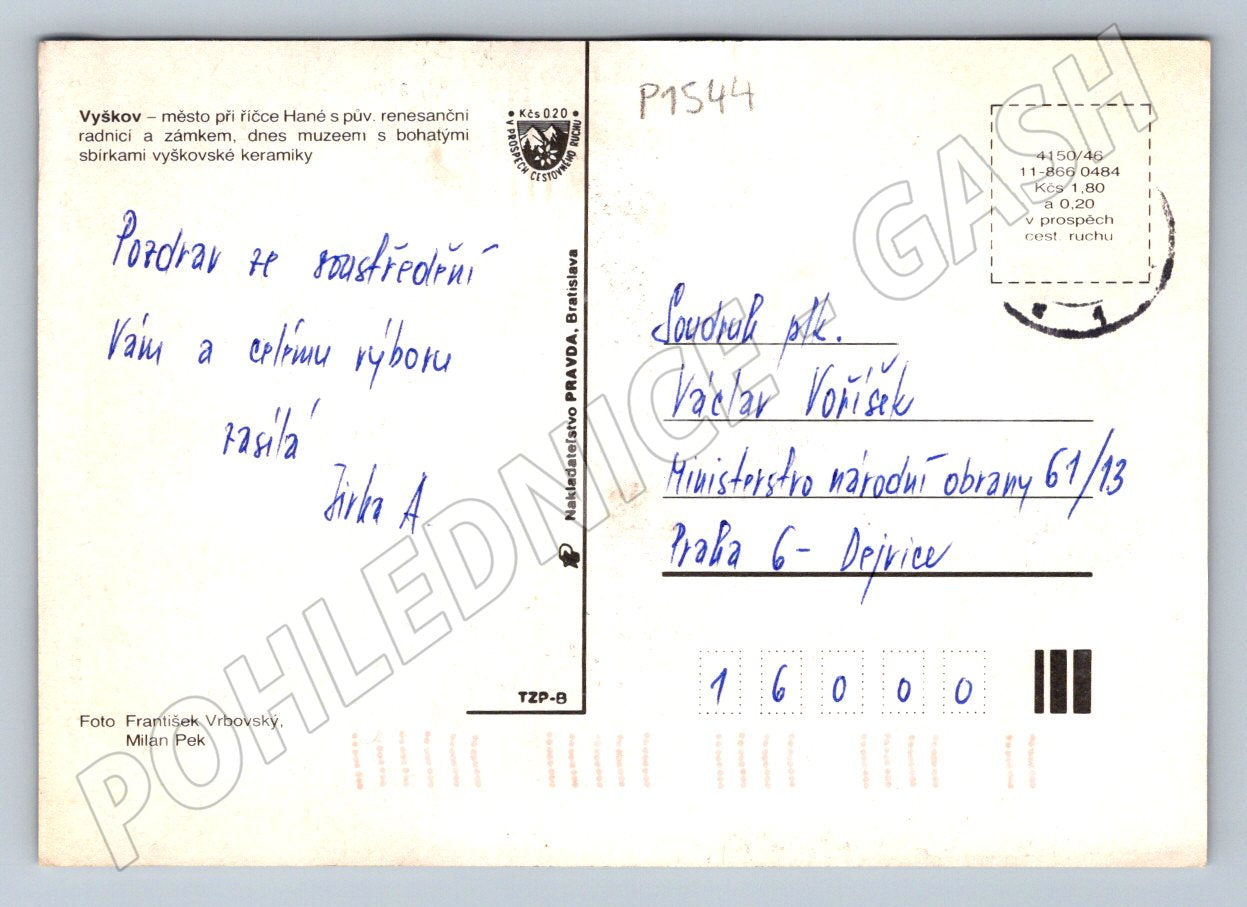 P1544
Vyškov – město při říčce Hané s pův. renesanční
radnicí a zámkem, dnes muzeem s bohatými
sbírkami vyškovské keramiky
• Kčs 020 •
V PROSPĚCH CESTOVNÉHO RUCHU
4150/46
11-866 0484
Kčs 1,80
a 0,20
v prospěch
cest. ruchu
1
Pozdrav ze soustředění
Vám a celému výboru
zasílá
Jirka A.
Nakladateľstvo PRAVDA, Bratislava
Soudruh plk.
Václav Voříšek
Ministerstvo národní obrany 61/13
Praha 6 - Dejvice
16000
TZP-8
Foto František Vrbovský,
Milan Pek
POHLEDNICE - GASH